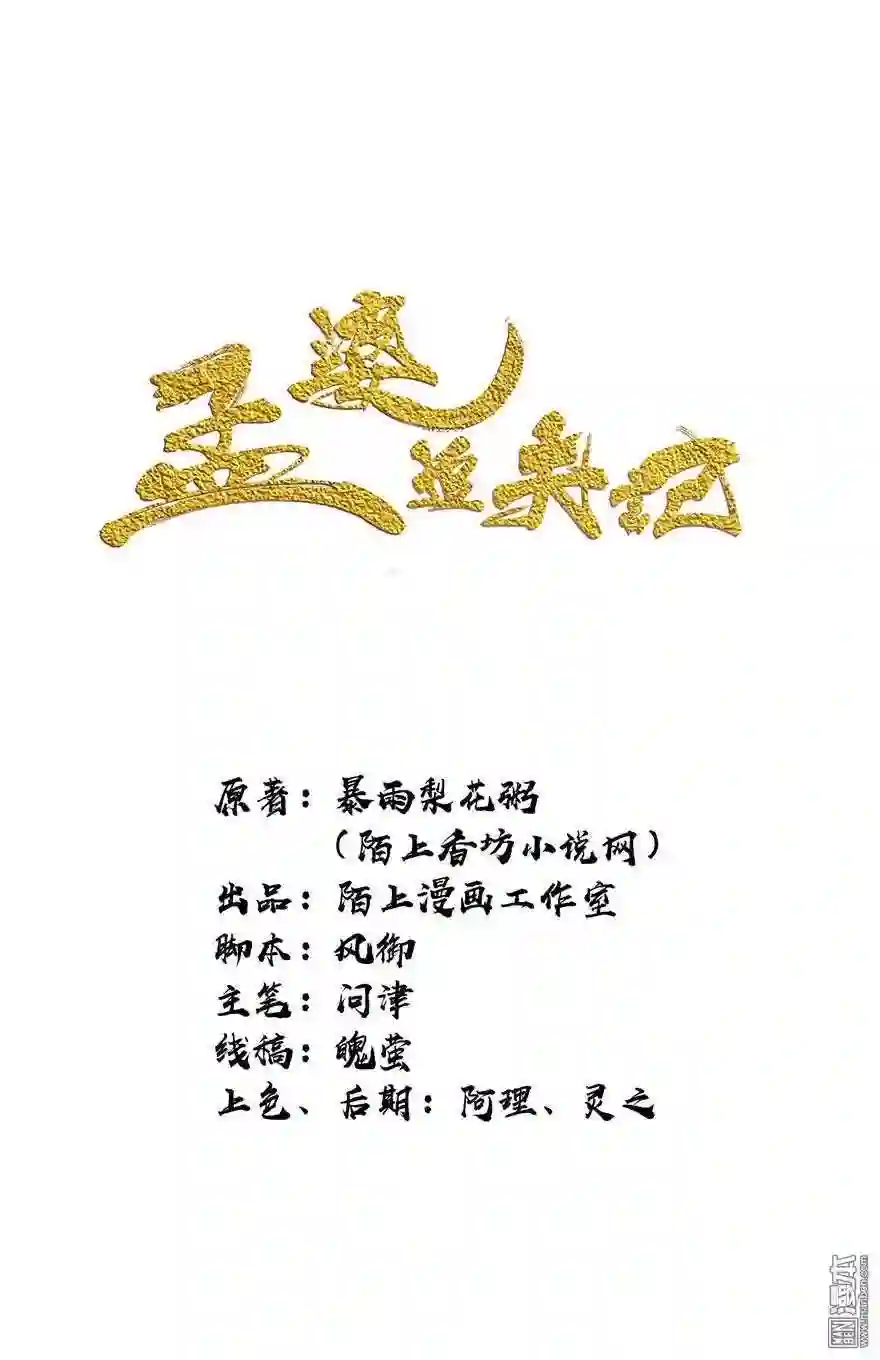 孟婆追夫记
原著：暴雨梨花粥
（陌上香坊小说网）
出品：陌上漫画工作室
脚本：风御
主笔：问津
线稿：魄萤
上色、后期：阿理、灵之
漫本
MANBEN
www.manben.com